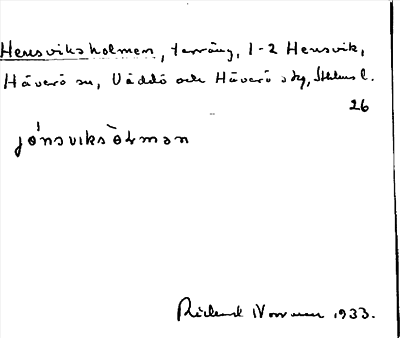 Hensviksholmen, terräng, 1-2 Hensvik,
Häverö sn, Väddö och Häverö skg, Sthlms l.
26
jónsviksòlmən
Rickard Norrman 1933.